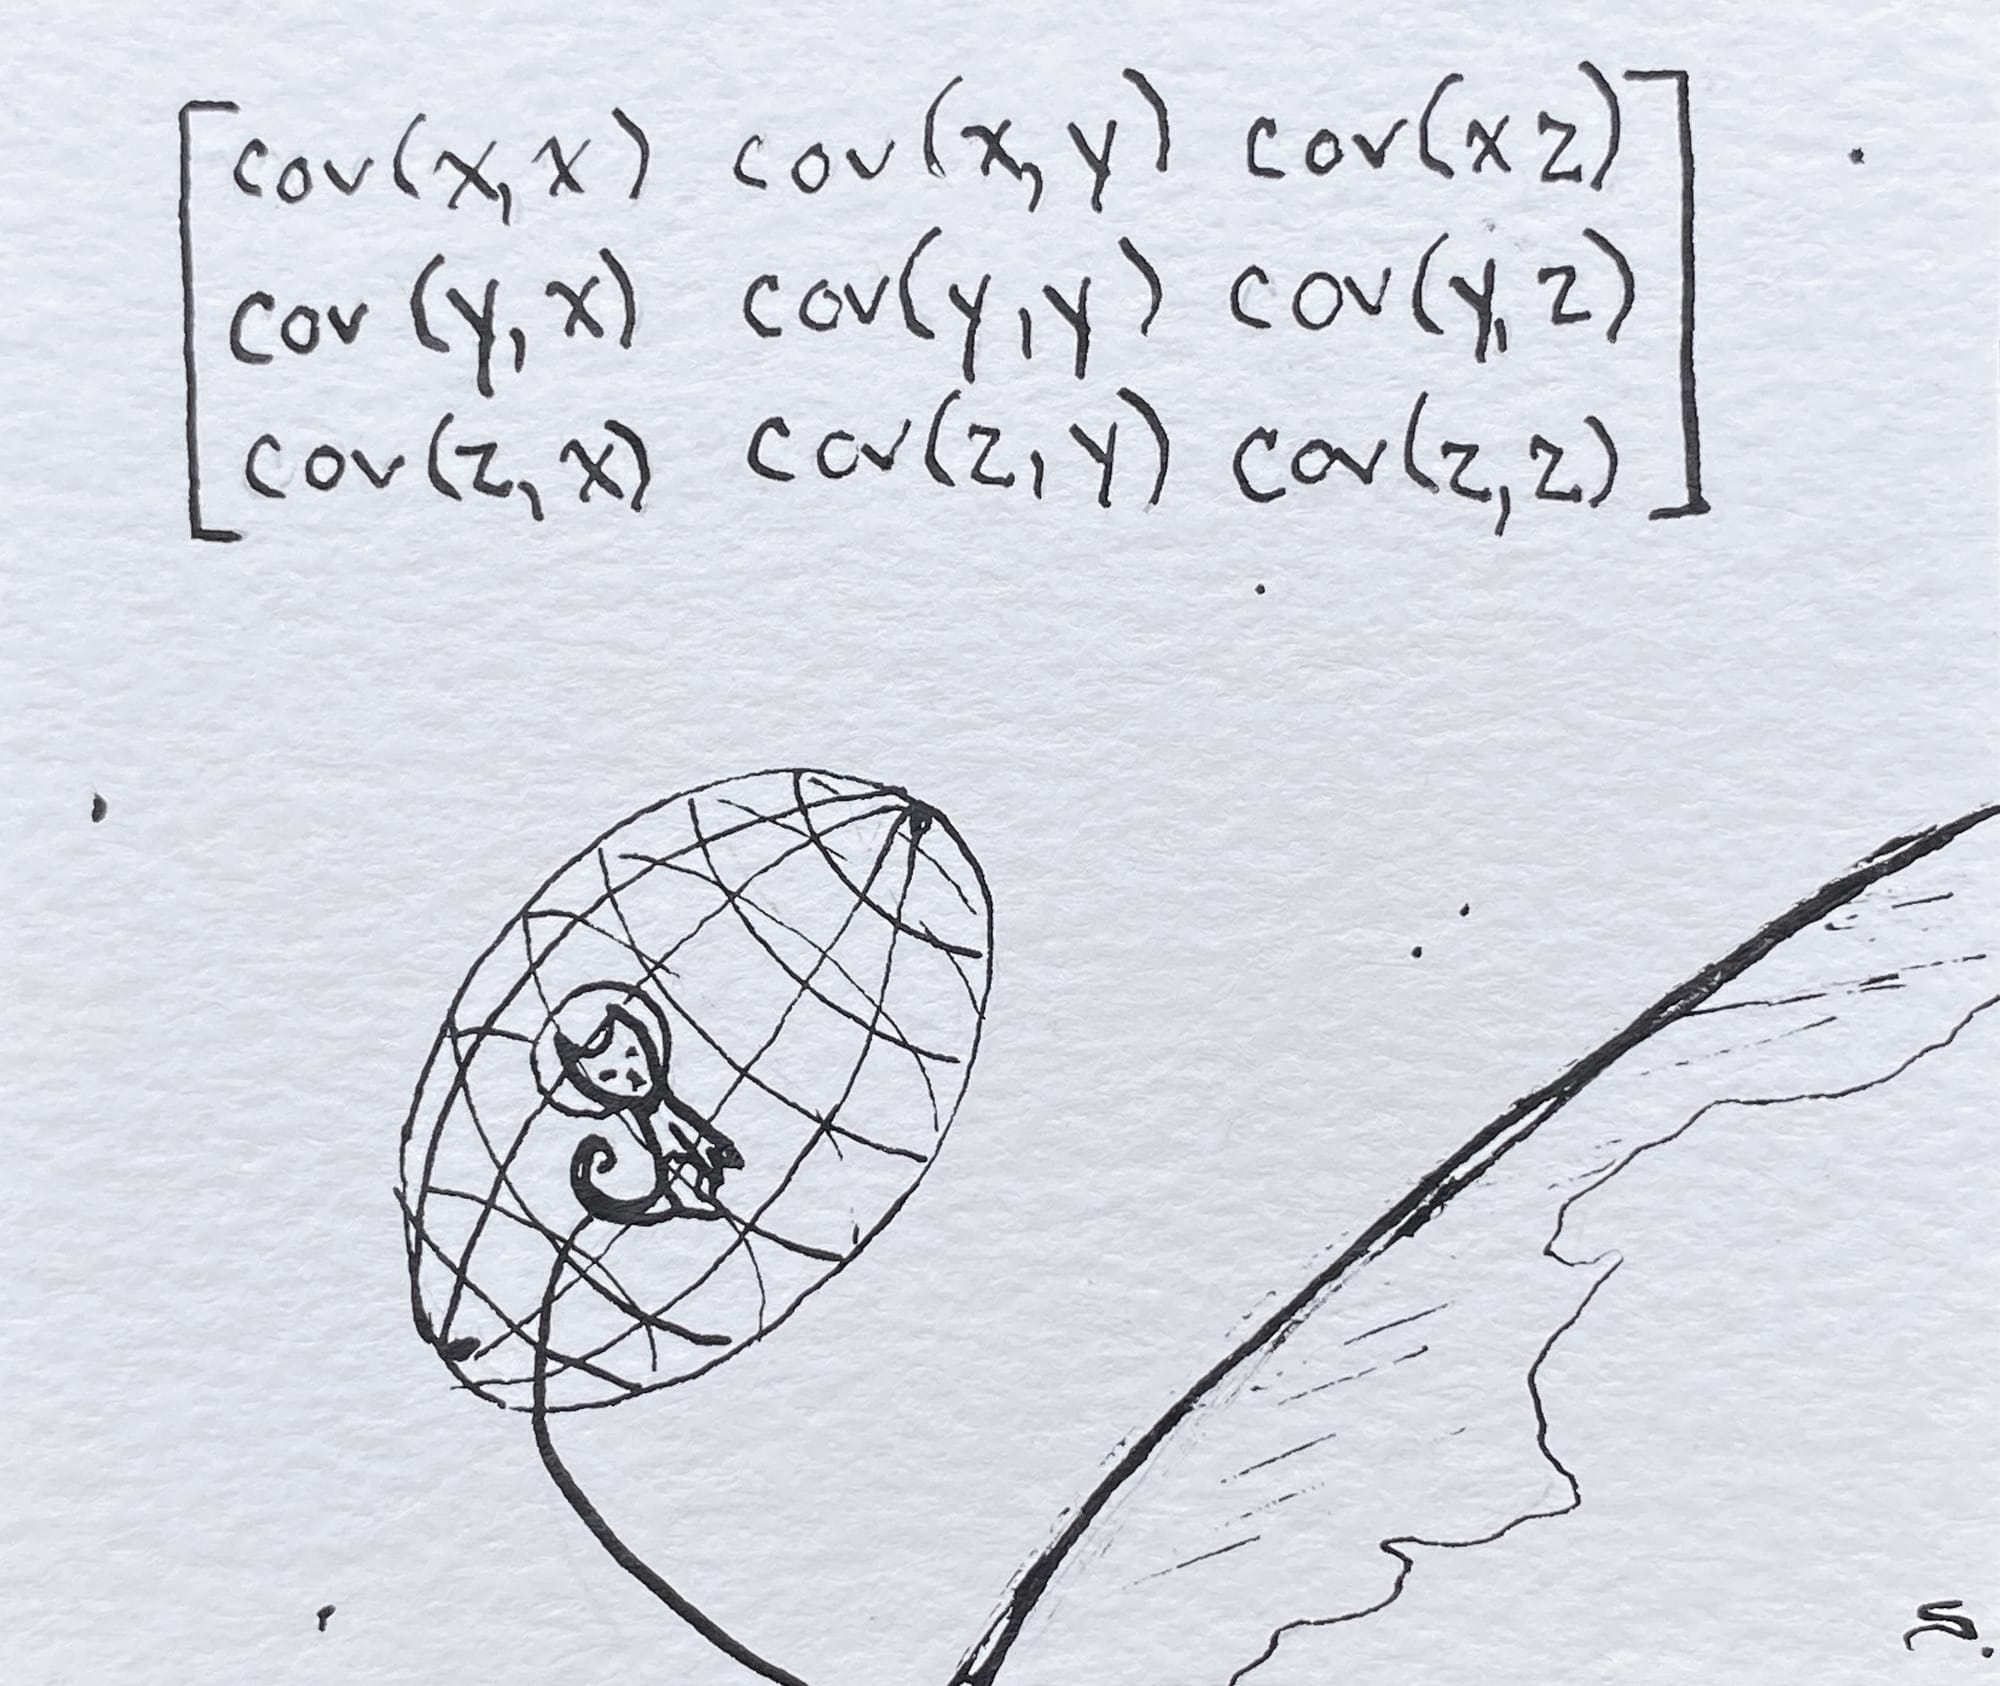 cov(x,x) cov(x,y) cov(x z)
cov(y,x) cov(y,y) cov(y,z)
cov(z,x) cov(z,y) cov(z,z)
S.